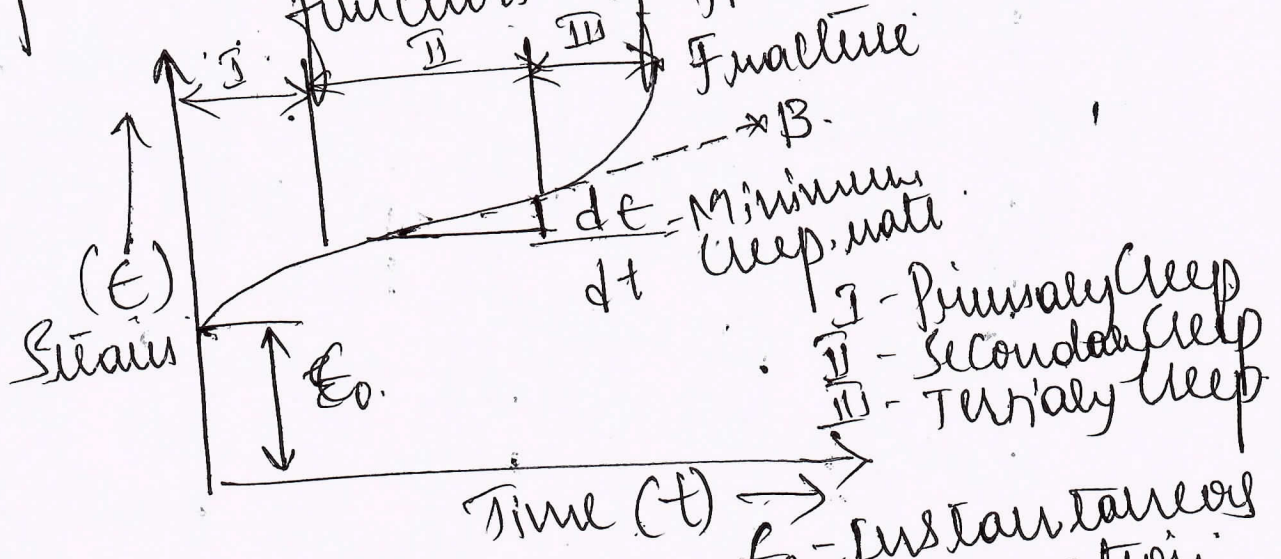 I II III
Fracture
B.
dε - Minimum
dt Creep rate
(ε)
Strain
ε₀.
I - Primary Creep
II - Secondary Creep
III - Tertiary Creep
Time (t)
ε₀ - Instantaneous